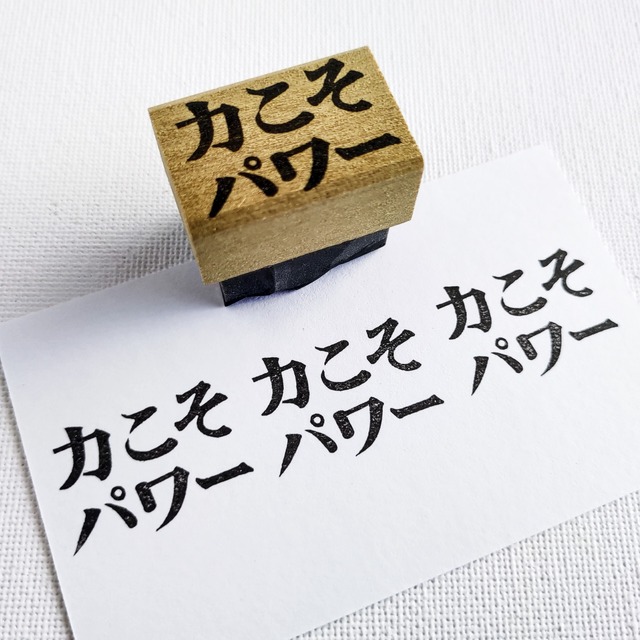 力こそ
パワー
力こそ
パワー
力こそ
パワー
力こそ
パワー